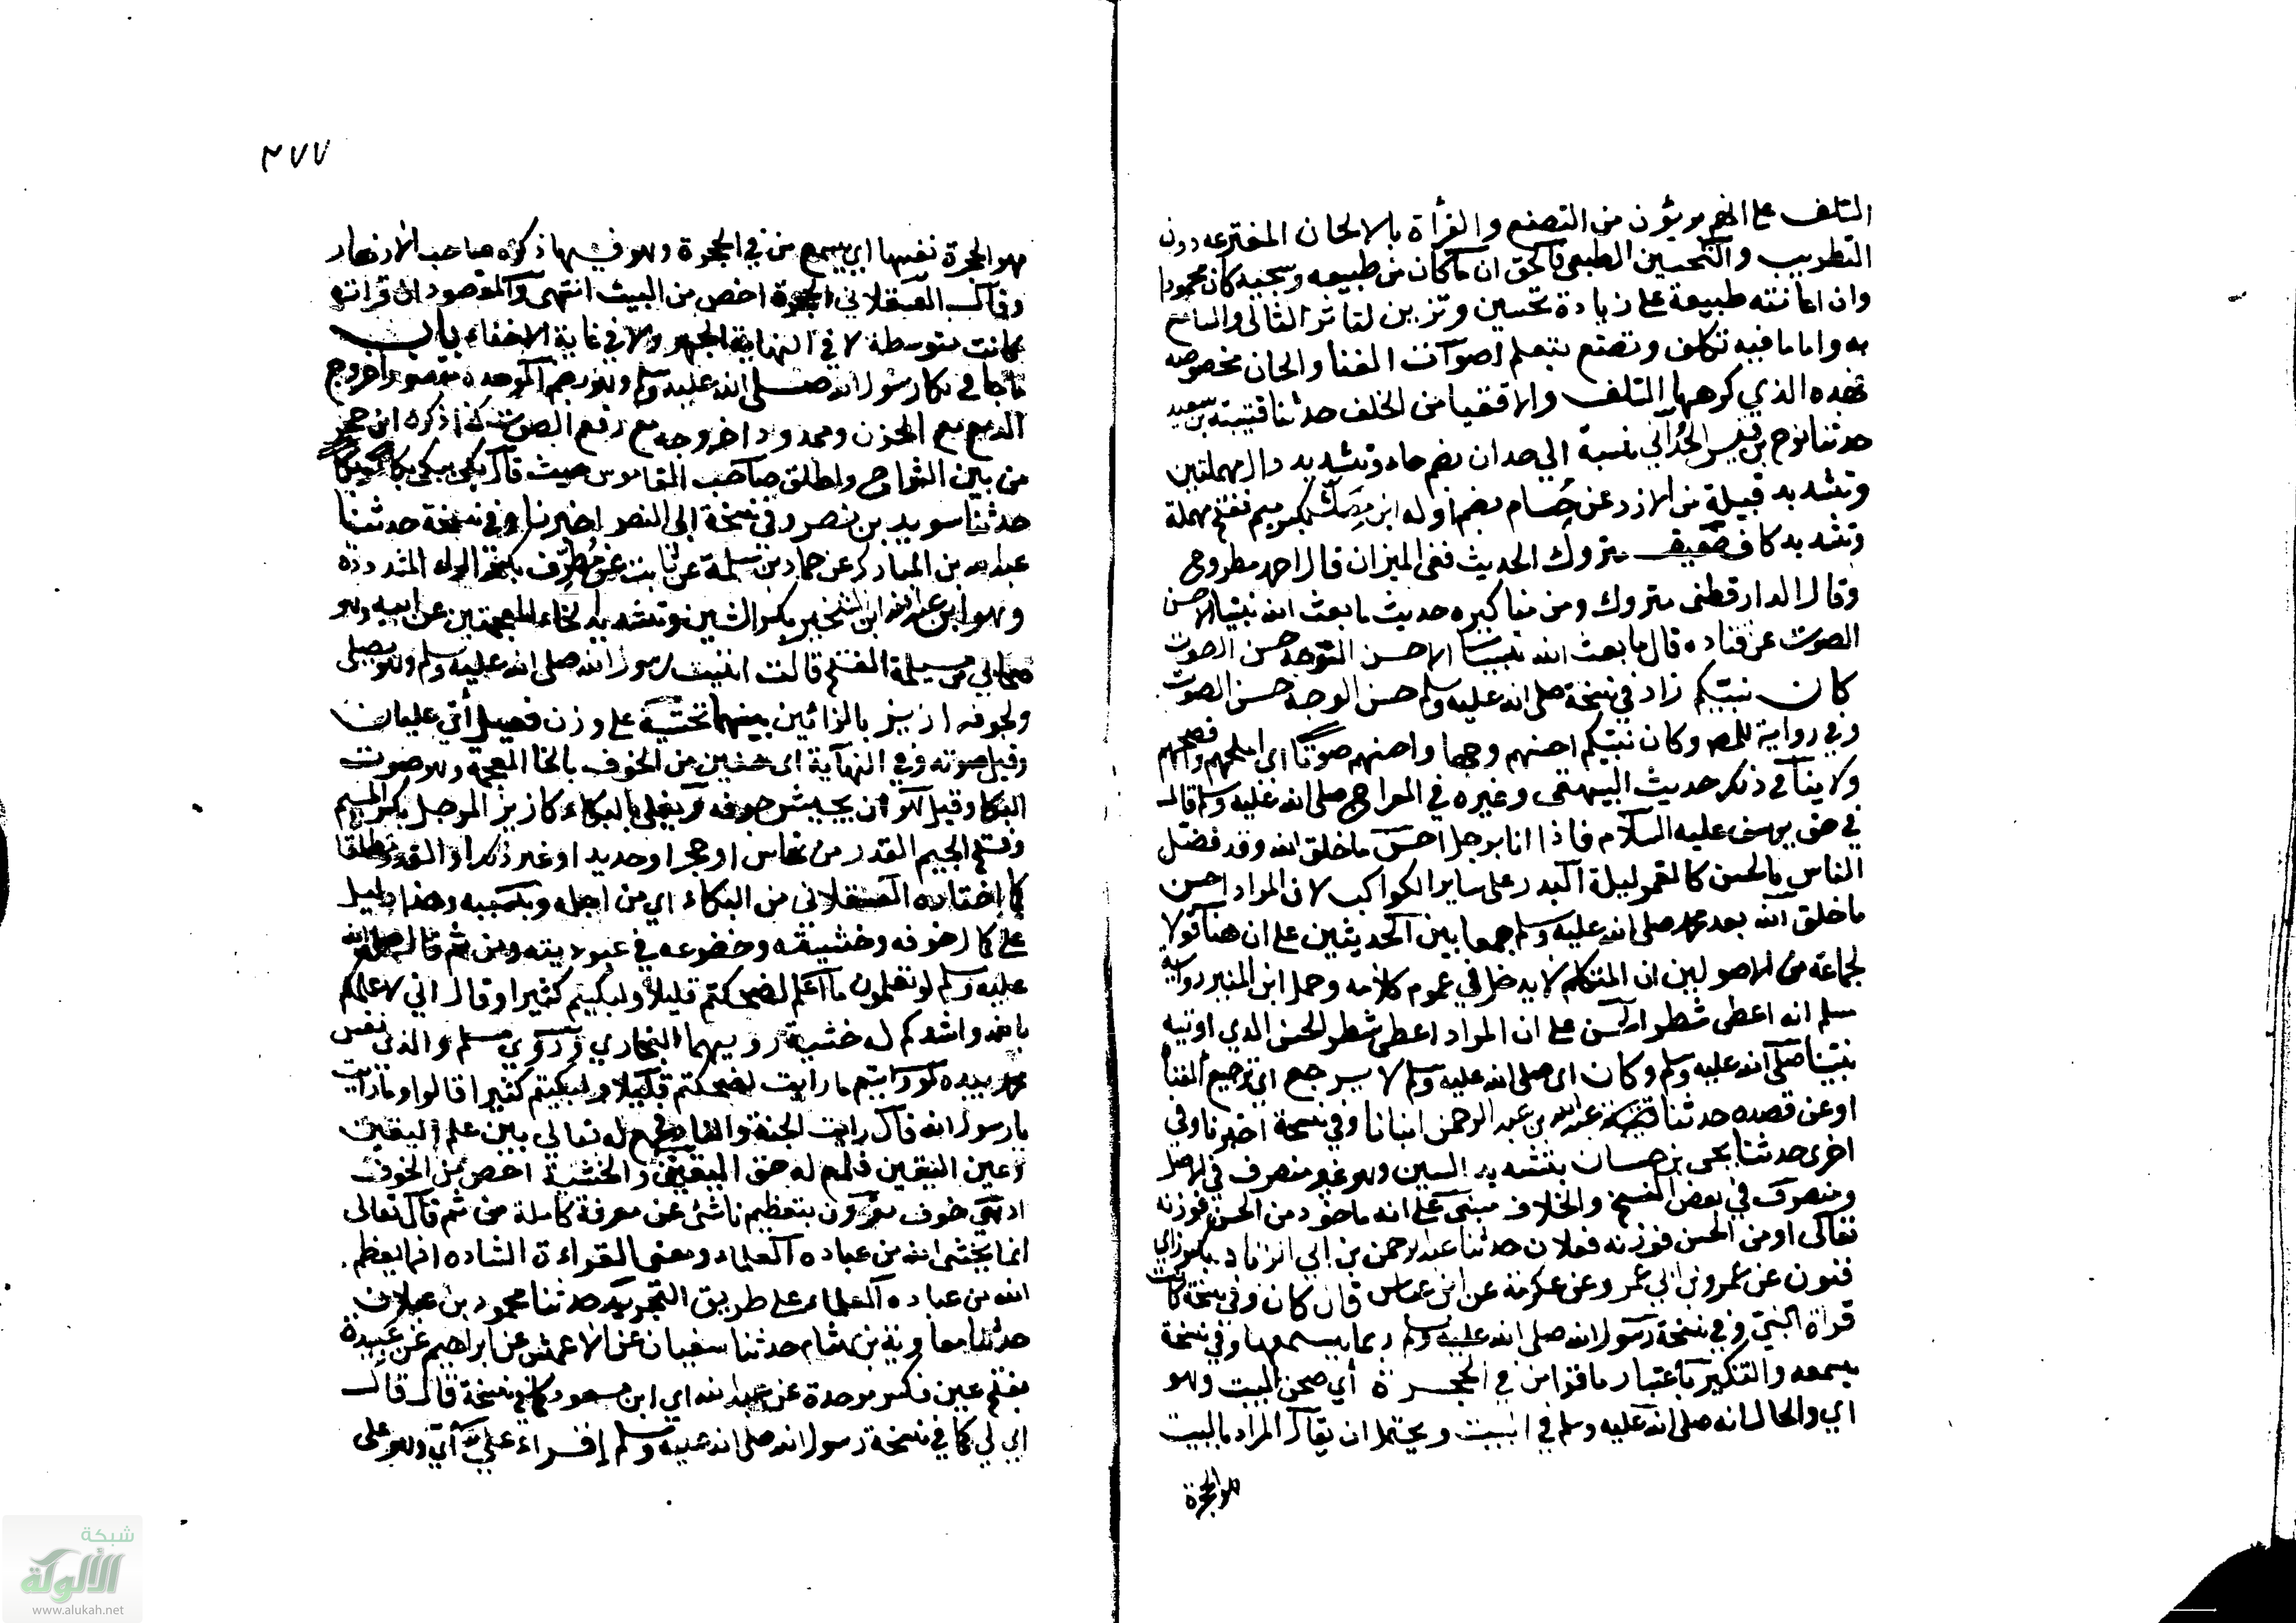 السلف على انهم بريئون من التصنع والقرأة بالالحان المخترعه دون
التطريب والتحسين الطبعي فالحق ان ما كان من طبيعه وسجيه كان محمودا
وان اعانته طبيعة على زيادة تحسين وتزيين لتاثر التالى والسامع
به واما ما فيه تكلف وتصنع بتعلم اصوات الغنا والحان مخصوصه
فهذه الذي كرهها السلف والاتقيا من الخلف حدثنا قتيبة بن سعيد
حدثنا نوح بن قيس الحُدّاني نسبة الى حدان بضم حاء وتشديد دال مهملتين
وتشديد قبيلة من الازد عن حسام بضم اوله ابن مِصَكّ بكسر ميم ففتح مهملة
وتشديد كاف ضعيف متروك الحديث ففي الميزان قال احمد مطروح
وقال الدارقطنى متروك ومن مناكيره حديث ما بعث الله نبيا الا حسن
الصوت عن قتاده قال ما بعث الله نبيا الا حسن الوجه حسن الصوت
كان نبيكم زاد في نسخة صلى الله عليه وسلم حسن الوجه حسن الصوت
وفي رواية للمص وكان نبيكم احسنهم وجها واحسنهم صوتا اى املحهم وافصحهم
ولا ينافي ذلك حديث البيهقى وغيره في المعراج صلى الله عليه وسلم قال
في حق يوسف عليه السلام فاذا انا برجل احسن ما خلق الله وقد فضل
الناس بالحسن كالقمر ليلة البدر على ساير الكواكب لان المراد احسن
ما خلق الله بعد محمد صلى الله عليه وسلم جمعا بين الحديثين على ان هنا قولا
لجماعة من الاصوليين ان المتكلم لا يدخل في عموم كلامه وحمل ابن المنير رواية
مسلم انه اعطى شطر الحسن على ان المراد اعطى شطر الحسن الذي اوتيه
نبينا صلى الله عليه وسلم وكان اى صلى الله عليه وسلم لا يرجع اي ترجيع الغنا
او عن قصده حدثنا عبدالله بن عبد الرحمن انبانا وفي نسخة اخبرنا وفي
اخرى حدثنا يحيى بن حسان بتشديد السين وهو غير منصرف في الاصل
ومنصرف في بعض النسخ والخلاف مبنى على انه ماخوذ من الحس فوزنه
فعالى او من الحسن فوزنه فعلان حدثنا عبد الرحمن بن ابي الزناد بكسر زاي
فنون عن عمرو بن ابي عمرو عن عكرمة عن ابن عباس قال كان وفي نسخة كانت
قراة النبي وفي نسخة رسول الله صلى الله عليه وسلم ربما يسمعها وفي نسخة
يسمعه والتذكير باعتبار ما قرا من في الحجرة أي صحن البيت وهو
اي والحال انه صلى الله عليه وسلم في البيت ويحتمل ان يقال المراد بالبيت
هو الحجرة
٢٧٧
هو الحجرة نفسها اي يسمع من في الحجرة وهو فيها ذكره صاحب الازهار
وقال العسقلاني الحجرة اخص من البيت انتهى والمقصود ان قراته
كانت متوسطة لا في النهاية الجهر ولا في غاية الاخفاء باب
ما جا في بكا رسول الله صلى الله عليه وسلم وهو بضم الموحدة مقصورا خروج
الدمع مع الحزن وممدودا خروجه مع رفع الصوت كذا ذكره ابن حجر
من بين الشراح واطلق صاحب القاموس حيث قال بكى يبكى بكا
حدثنا سويد بن نصر وفي نسخة ابن النصر اخبرنا وفي نسخة حدثنا
عبد الله بن المبارك عن حماد بن سلمة عن ثابت عن مُطرِّف بكسر الراء المشددة
وهو ابن عبد الله ابن الشخير بكسر الشين وتشديد الخاء المعجمتين عن ابيه وهو
صحابي من مسلمة الفتح قال اتيت رسول الله صلى الله عليه وسلم وهو يصلى
ولجوفه ازيز بالزائين بينهما تحتية على وزن فعيل أي غليان
وقيل صوته وفي النهاية اى خنين من الخوف بالخا المعجمة وهو صوت
البكا وقيل هو ان يجيش جوفه ويغلى بالبكاء كازيز المرجل بكسر الميم
وفتح الجيم القدر من نحاس او حجر او حديد او غير ذلك او القدر مطلقا
كما اختاره العسقلاني من البكاء اي من اجله وبسببه وهذا دليل
على كمال خوفه وخشيته وخضوعه في عبوديته ومن ثم قال صلى الله
عليه وسلم لو تعلمون ما اعلم لضحكتم قليلا ولبكيتم كثيرا وقال اني لاعلمكم
بالله واشدكم له خشية رويهما البخاري وروى مسلم والذي نفس
محمد بيده لو رايتم ما رايت لضحكتم قليلا ولبكيتم كثيرا قالوا وما رايت
يا رسول الله قال رايت الجنة والنار فجمع له تعالى بين علم اليقين
وعين اليقين فلهم له حق اليقين والخشية اخص من الخوف
اذ هي خوف مقرون بتعظيم ناشئ عن معرفة كاملة من ثم قال تعالى
انما يخشى الله من عباده العلماء ومعنى القراءة الشاده انما يعظم
الله من عباده العلماء على طريق التجريد حدثنا محمود بن غيلان
حدثنا معاوية بن هشام حدثنا سفيان عن الاعمش عن ابراهيم عن عَبيدة
بفتح عين فكسر موحدة عن عبد الله اي ابن مسعود كما في نسخة قال قال
اي لي كما في نسخة رسول الله صلى الله عليه وسلم إقراء علىّ أي وهو على
شبكة
الألوكة
www.alukah.net